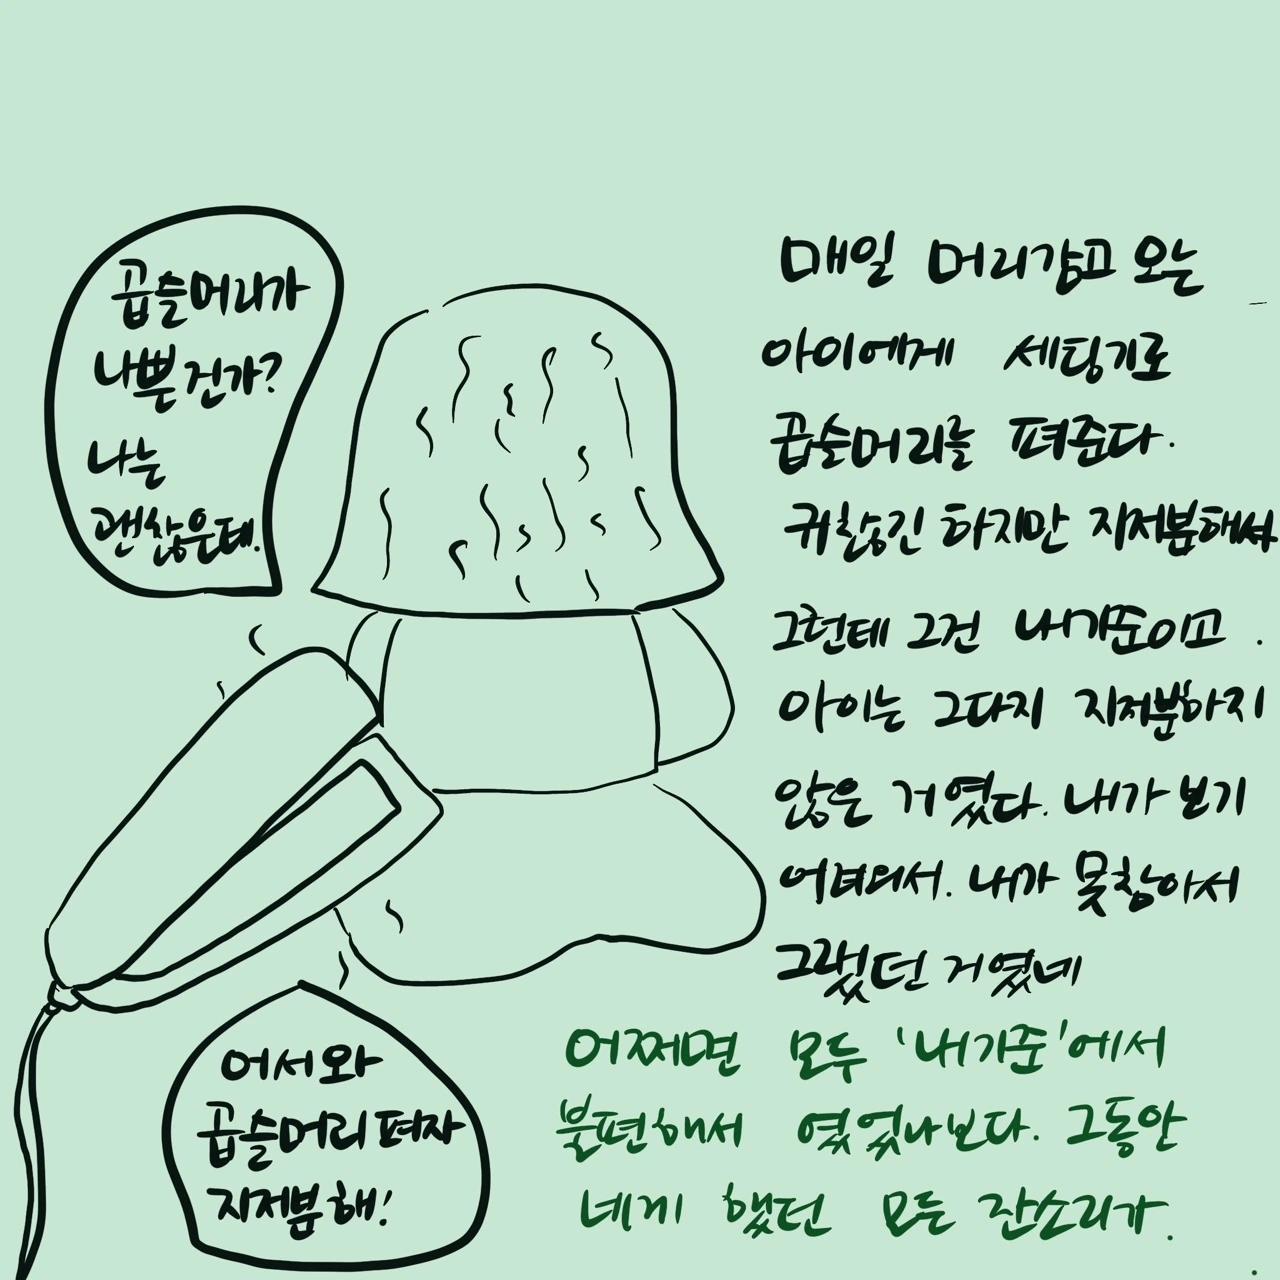 곱슬머리가
나쁜건가?
나는
괜찮은데.
매일 머리감고 오는
아이에게 세팅기로
곱슬머리를 펴준다.
귀찮긴 하지만 지저분해서
그런데 그건 내기준이고.
아이는 그다지 지저분하지
않은 거였다. 내가 보기
어려워서. 내가 못참아서
그랬던 거였네
어쩌면 모두 '내기준'에서
불편해서 였었나보다. 그동안
네게 했던 모든 잔소리가.
어서와
곱슬머리 펴자
지저분해!